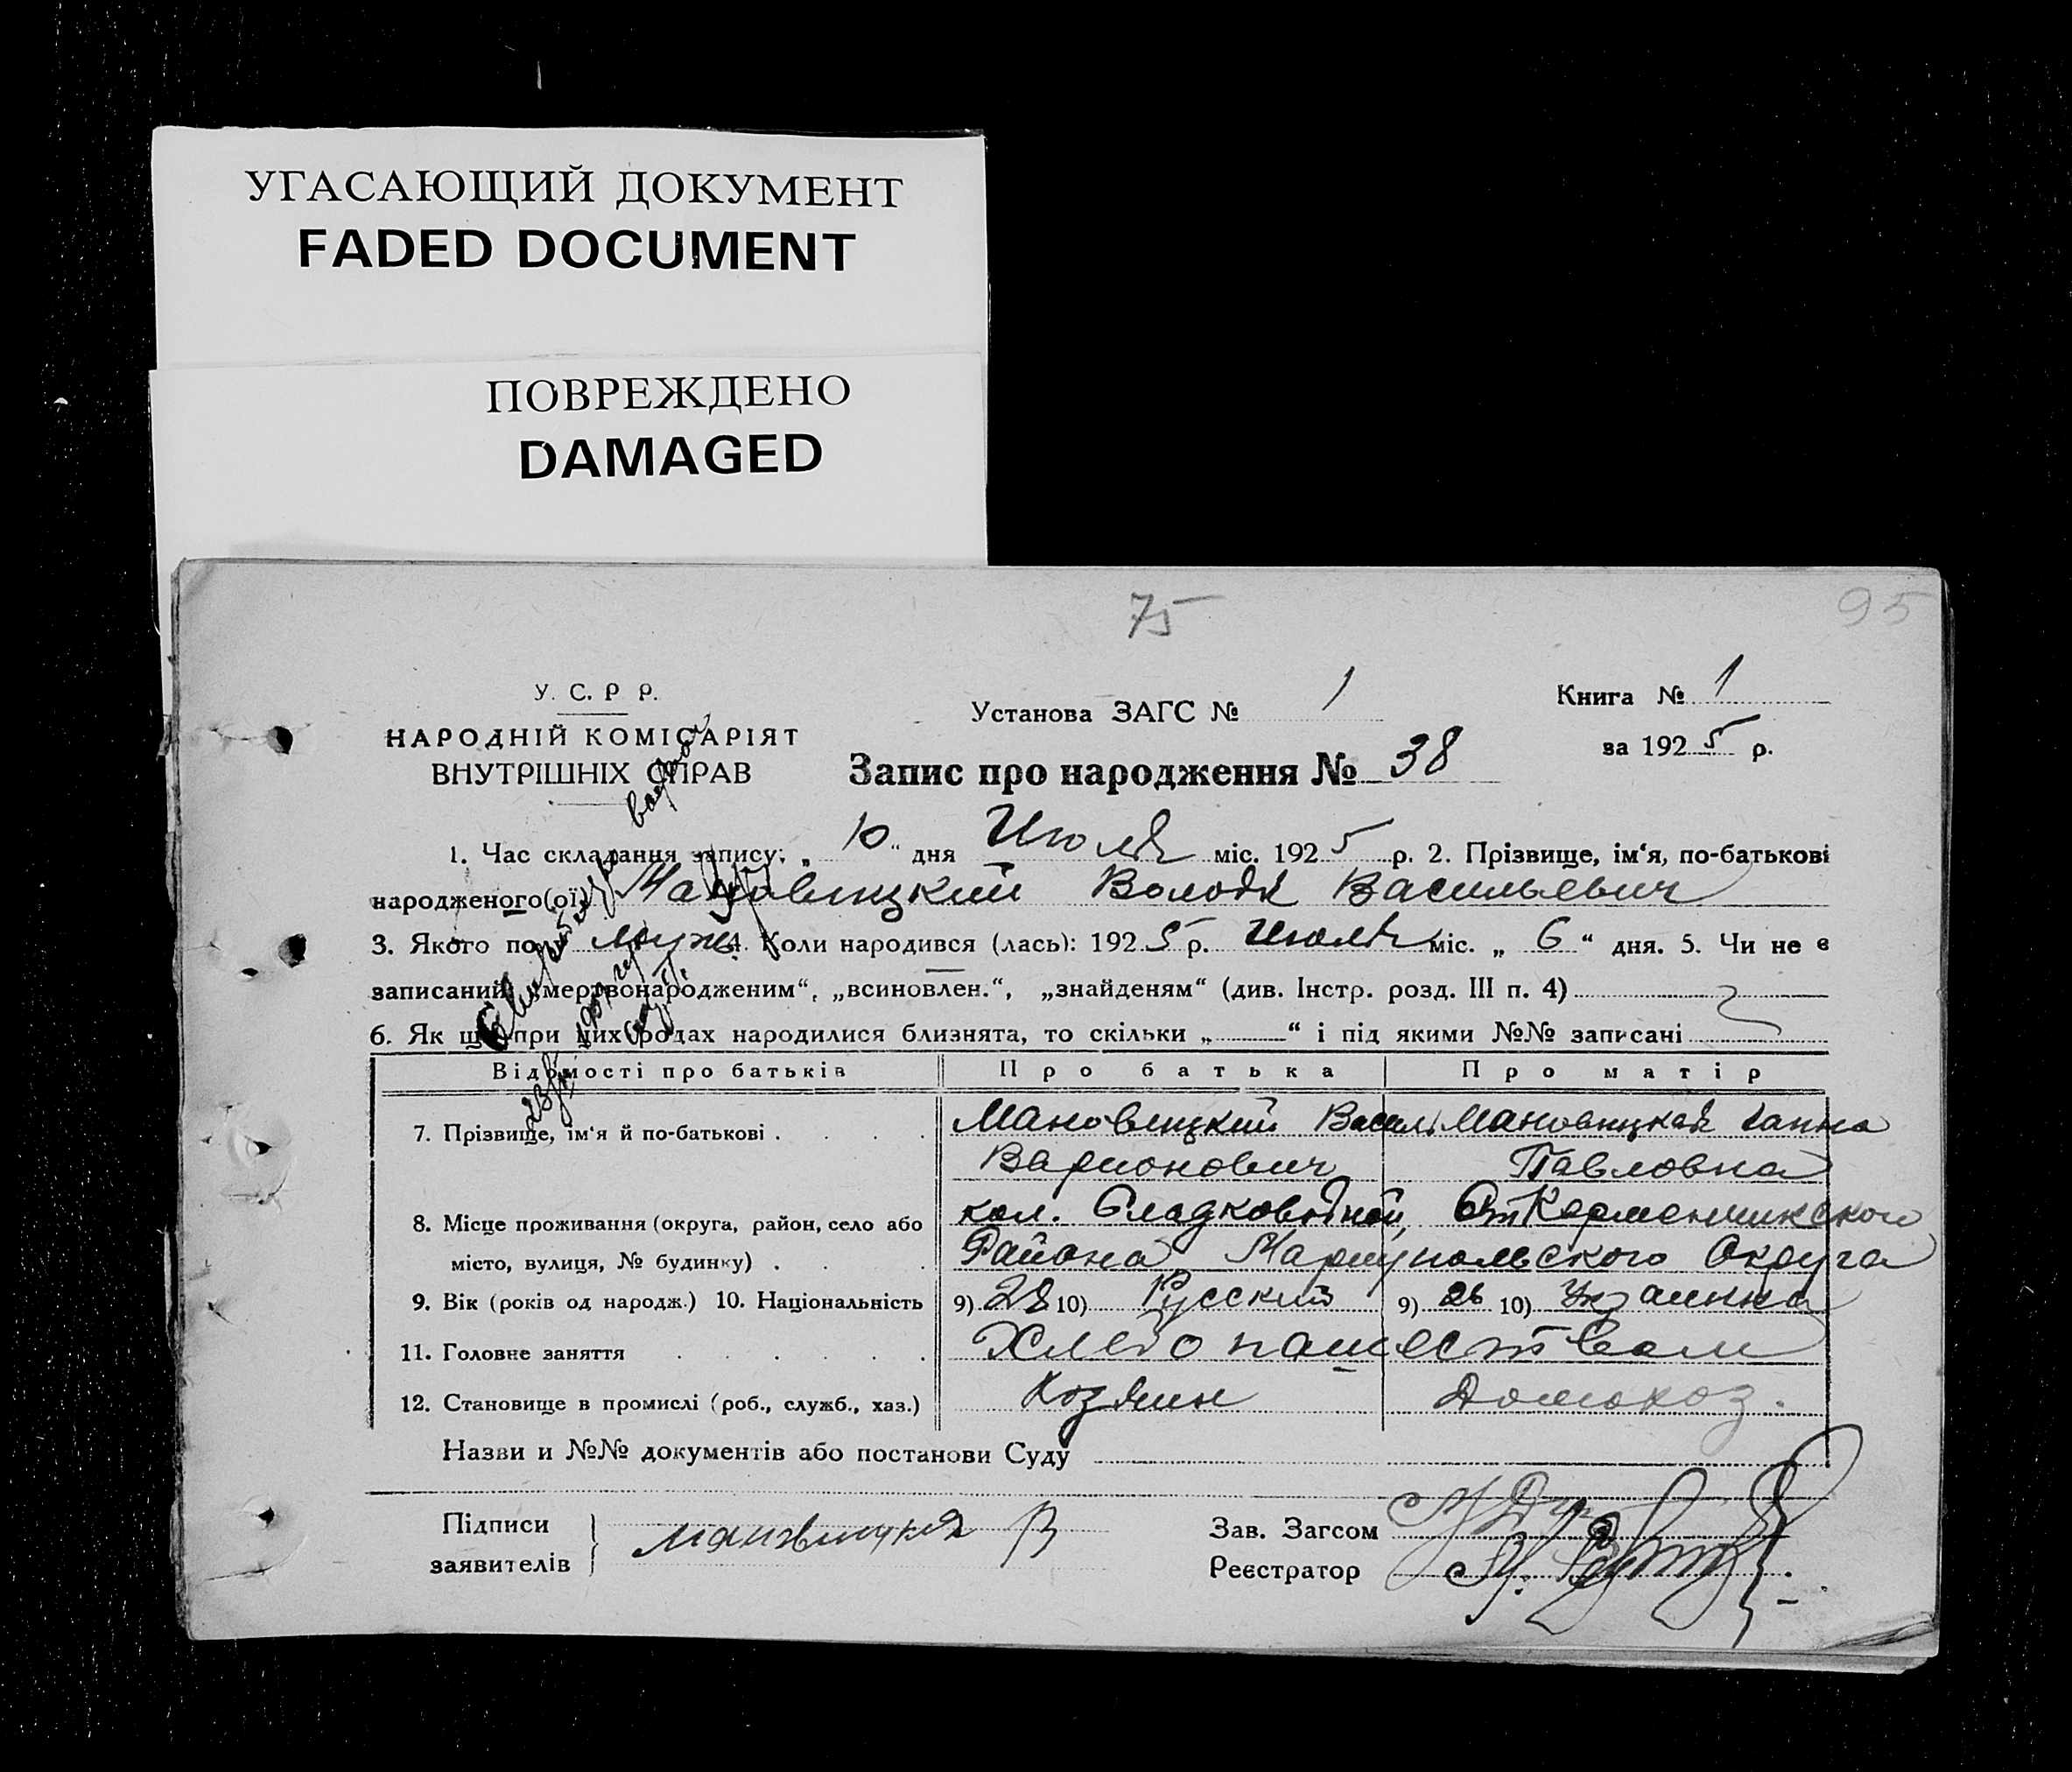 УГАСАЮЩИЙ ДОКУМЕНТ
FADED DOCUMENT
ПОВРЕЖДЕНО
DAMAGED
75
95
У. С. Р Р.
НАРОДНІЙ КОМІСАРІЯТ
ВНУТРІШНІХ СПРАВ
Установа ЗАГС № 1
Книга № 1
за 1925 р.
Запис про народження № 38
1. Час складання запису: „ 10 “ дня Июля міс. 1925 р. 2. Прізвище, ім‘я, по-батькові
народженого(ої) Мановицкий Володя Васильевич
3. Якого полу муж. 4. Коли народився (лась): 1925 р. Июля міс. „ 6 “ дня. 5. Чи не є
записаний „мертвонародженим“, „всиновлен.“, „знайденям“ (див. Інстр. розд. III п. 4)
6. Як що при цих родах народилися близнята, то скільки „ “ і під якими №№ записані
Відомості про батьків Про батька Про матір
7. Прізвище, ім‘я й по-батькові . . . . Мановицкий Василь Мановицкая Ганна
Варионович Павловна
8. Місце проживання (округа, район, село або кол. Сладководной, Керменчикского
місто, вулиця, № будинку) . . . Района Мариупольского Округа
9. Вік (років од народж.) 10. Національність 9) 28 10) Русский 9) 26 10) Украинка
11. Головне заняття . . . . . . Хлебопашеством
12. Становище в промислі (роб., служб., хаз.) Хозяин Домохоз.
Назви и №№ документів або постанови Суду
Підписи
заявителів
Мановицкя В
Зав. Загсом
Реєстратор